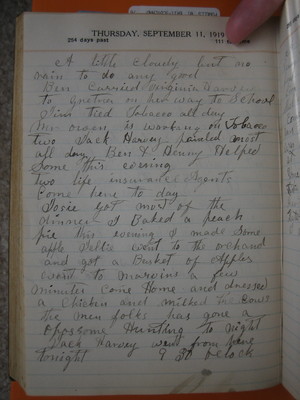 THURSDAY, SEPTEMBER 11, 1919
254 days past
A little cloudy but no
rain to do any good
Ben carried Virginia
to on her way to School
Jim tied Tobacco all day
Mr owen is working in Tobacco
two Jack Harvey painted most
all day Ben & Denny Helped
Some this evening
two life insurance Agents
Come here to day
Josie got most of the
dinner I Baked a peach
pie this evening I made some
apple Jellie went to the orchand
and got a Basket of Apples
went to Marvins a few
minutes Come Home and dressed
a chicken and milked two Cows
the men folks has gone a
opossome Hunting to night
Jack Harvey went from here
tonight 9 30 oclock